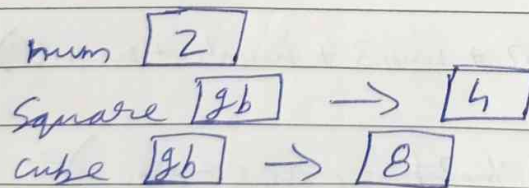 num 2
Square gb → 4
cube gb → 8